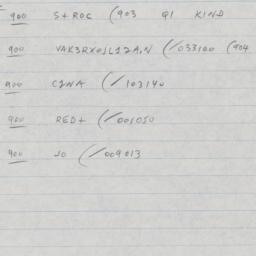 900 S+ROC (903 Q1 KIND
900 VAK3RX0JL12A,N (/033100 (904
900 C2NA (/103140
900 RED+ (/001010
900 JO (/009013